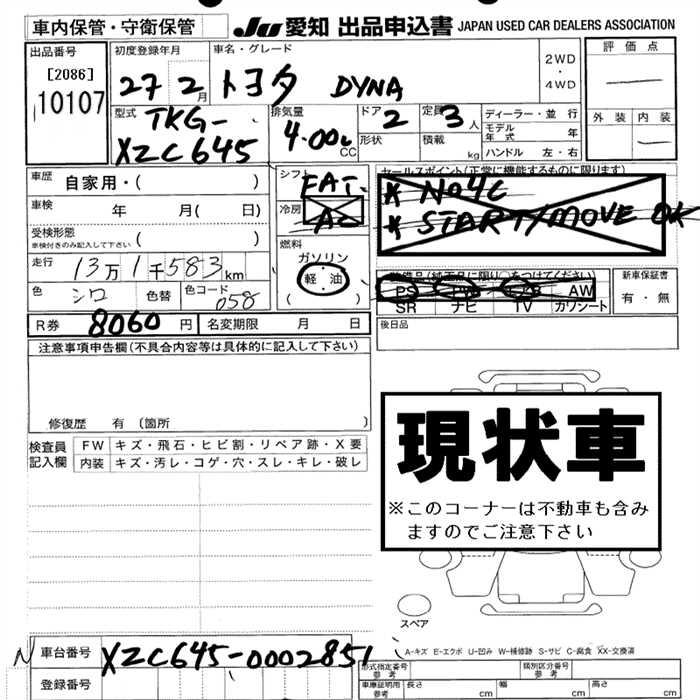 車内保管・守衛保管
JU 愛知 出品申込書 JAPAN USED CAR DEALERS ASSOCIATION
出品番号
[2086]
10107
初度登録年月
27 2月
車名・グレード
トヨタ DYNA
2WD
・
4WD
評価点
外装 内装
型式
TKG-
XZC645
排気量
4.00L
CC
ドア
2
定員
3人
形状
積載
kg
ディーラー・並行
モデル年式 年
ハンドル 左・右
車歴 自家用・( )
車検 年 月( 日)
受検形態
車検付きのみ記入して下さい
( )
走行 13万1千583km
色 シロ 色替 色コード 058
シフト FAT
冷房 AC
燃料
ガソリン
・
軽油
( )
セールスポイント(正常に機能するものに限ります)
* NO4C
* START/MOVE OK
装備品(純正品に限り○をつけてください)
PS AW
SR ナビ TV カワシート
新車保証書
有・無
R券 8060円 名変期限 月 日
後日品
注意事項申告欄(不具合内容等は具体的に記入して下さい)
修復歴 有 (箇所 )
検査員記入欄
FW キズ・飛石・ヒビ割・リペア跡・X要
内装 キズ・汚レ・コゲ・穴・スレ・キレ・破レ
現状車
※このコーナーは不動車も含み
ますのでご注意下さい
スペア
A-キズ E-エクボ U-凹み W-補修跡 S-サビ C-腐食 XX-交換済
N 車台番号 XZC645-0002851
登録番号
型式指定番号
参考
類別区分番号
参考
車庫証明用
参考
長さ cm 幅 cm 高さ cm